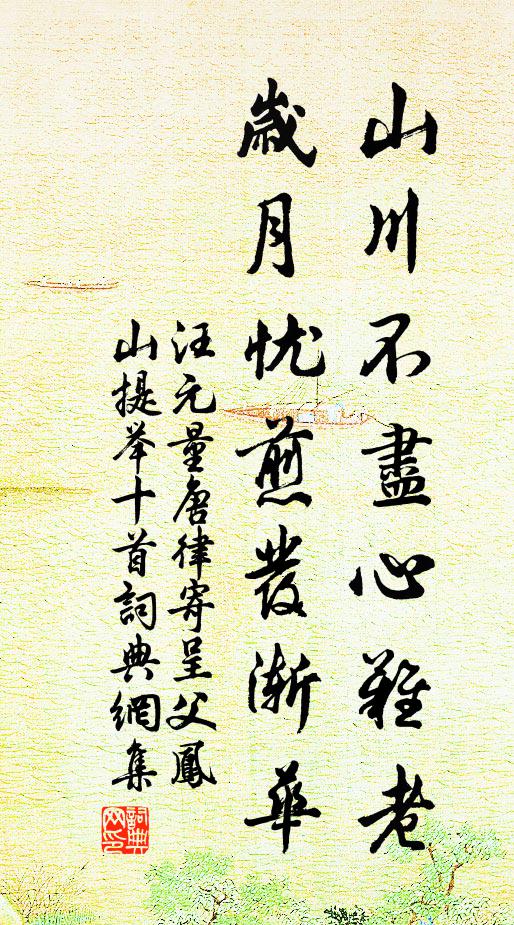 山川不盡心難老
歲月忧煎發漸華
汪元量唐律寄呈父鳳
山提举十首詞典網集
詞典
网印